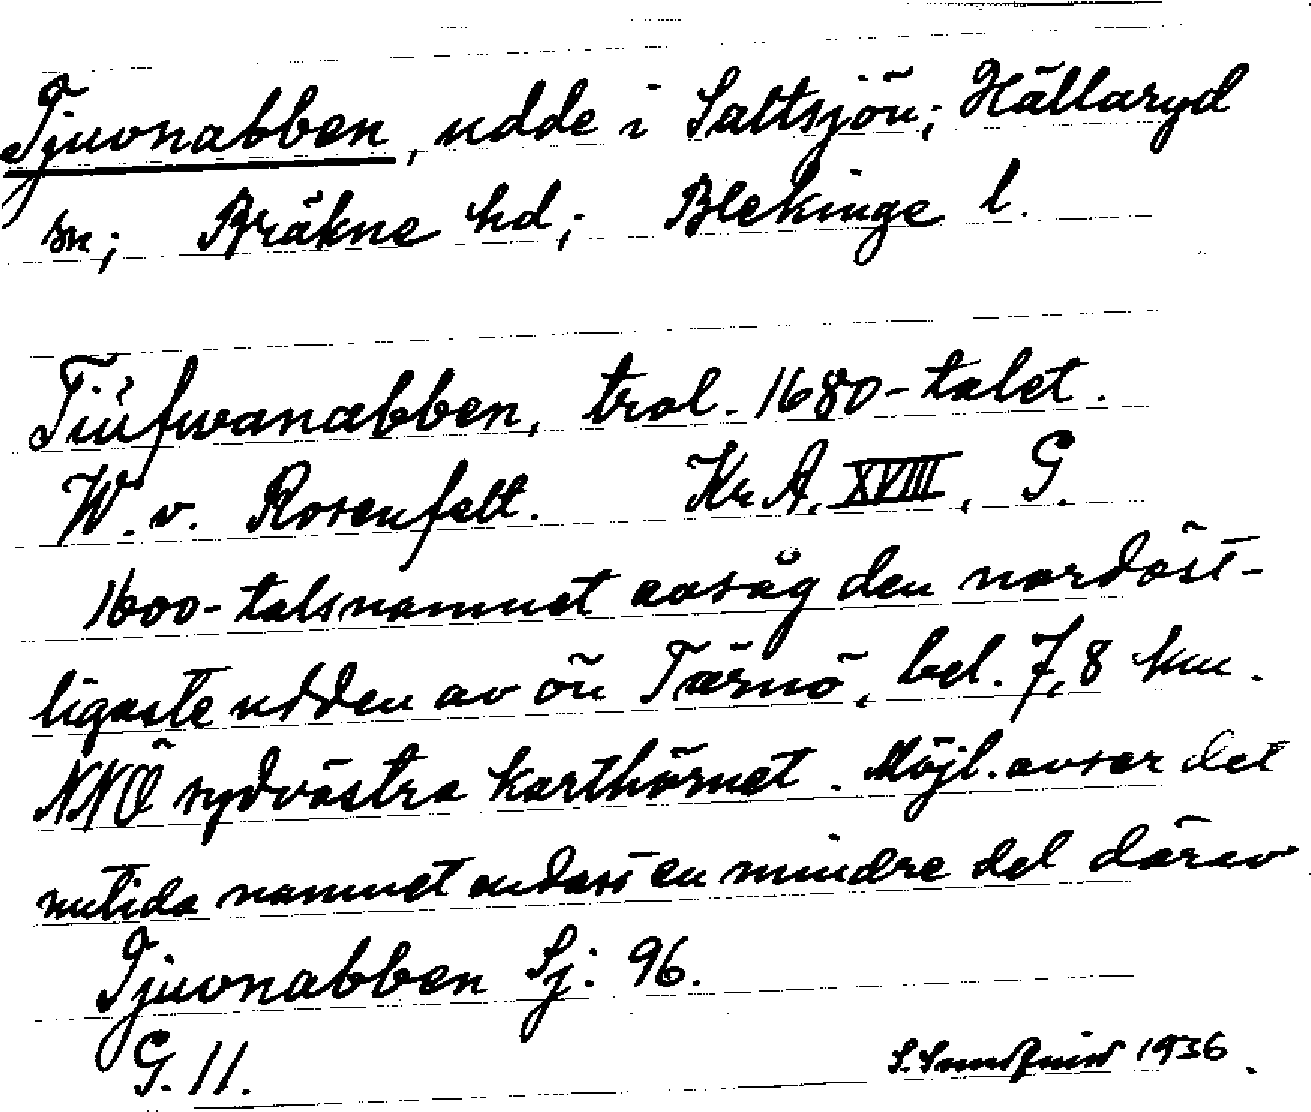 Tjuvnabben, udde i Saltsjön; Hällaryd
sn; Bräkne hd; Blekinge l.
Tiüfwanabben, trol. 1680-talet.
W. v. Rosenfelt. Kr. A. XVIII, G.
1600-talsnamnet avsåg den nordöst-
ligaste udden av ön Tärnö, bel. 7,8 km.
NNÖ sydvästra karthörnet. Möjl. avser det
nutida namnet endast en mindre del därav
Tjuvnabben Sj: 96.
G. 11.
S. 1936.